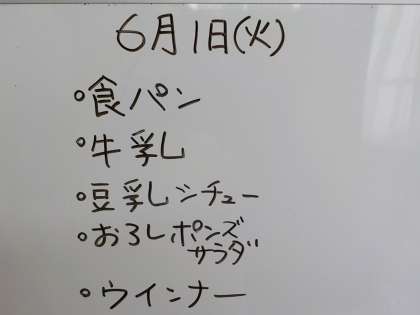 6月1日(火)
○食パン
○牛乳
○豆乳シチュー
○おろしポンズ
サラダ
○ウインナー